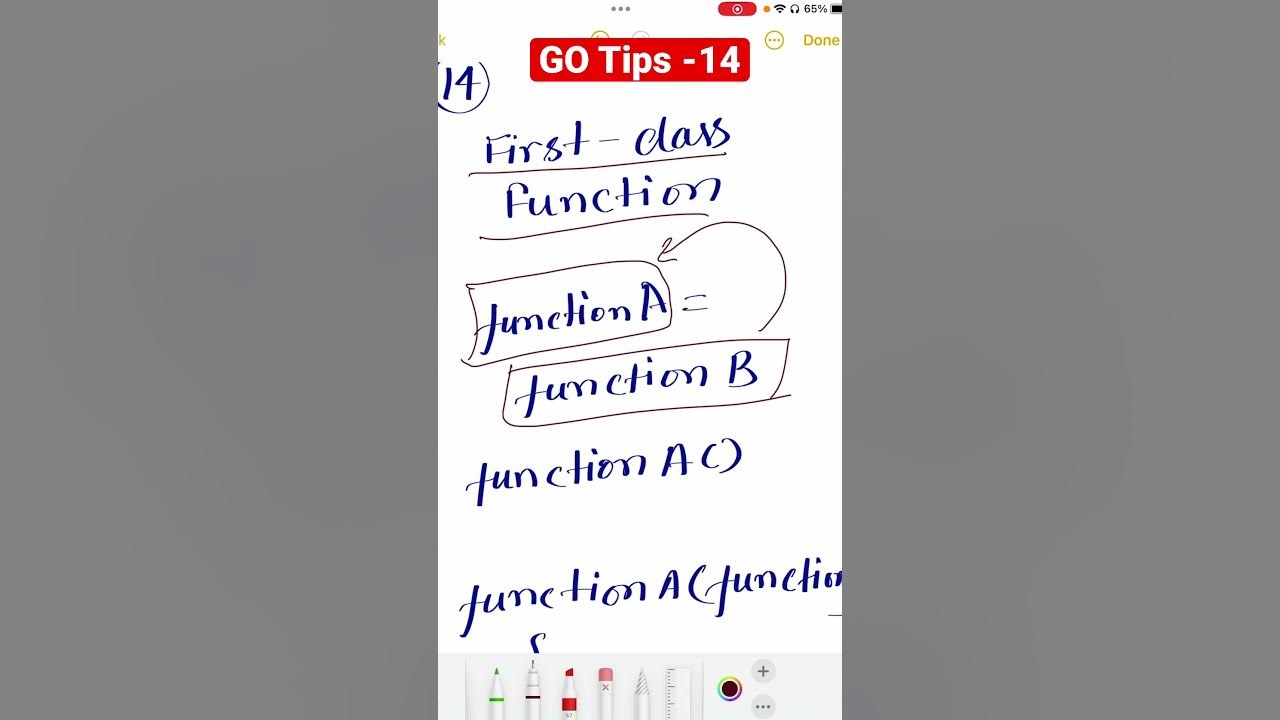 65%
k
Done
GO Tips -14
14
First-class
Function
function A =
function B
function A ()
function A (function